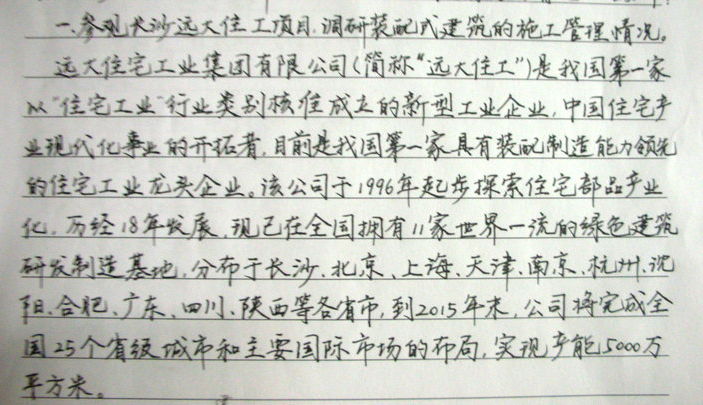 一、参观长沙远大住工项目,调研装配式建筑的施工管理情况。
远大住宅工业集团有限公司(简称"远大住工")是我国第一家
以"住宅工业"行业类别核准成立的新型工业企业,中国住宅产
业现代化事业的开拓者,目前是我国第一家具有装配制造能力领先
的住宅工业龙头企业。该公司于1996年起步探索住宅部品产业
化,历经18年发展,现已在全国拥有11家世界一流的绿色建筑
研发制造基地,分布于长沙、北京、上海、天津、南京、杭州、沈
阳、合肥、广东、四川、陕西等各省市,到2015年末,公司将完成全
国25个省级城市和主要国际市场的布局,实现产能5000万
平方米。